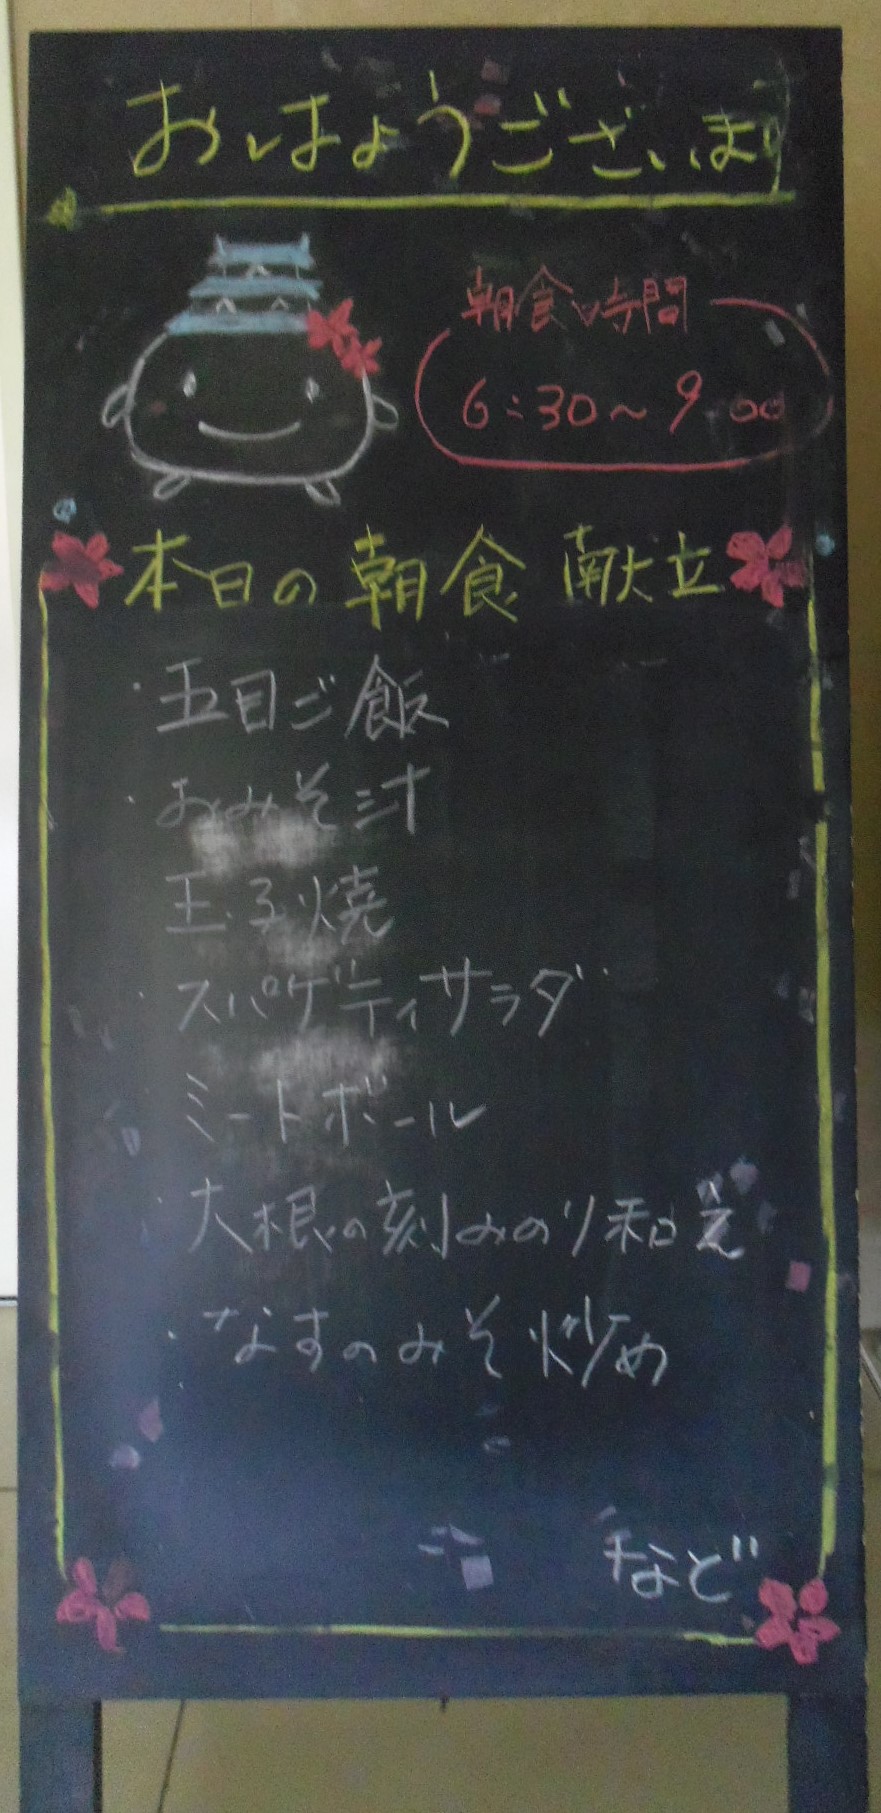 おはようございます
朝食時間
6:30～9:00
本日の朝食献立
・五目ご飯
・おみそ汁
玉子焼
・スパゲティサラダ
ミートボール
・大根の刻みのり和え
・なすのみそ炒め
など